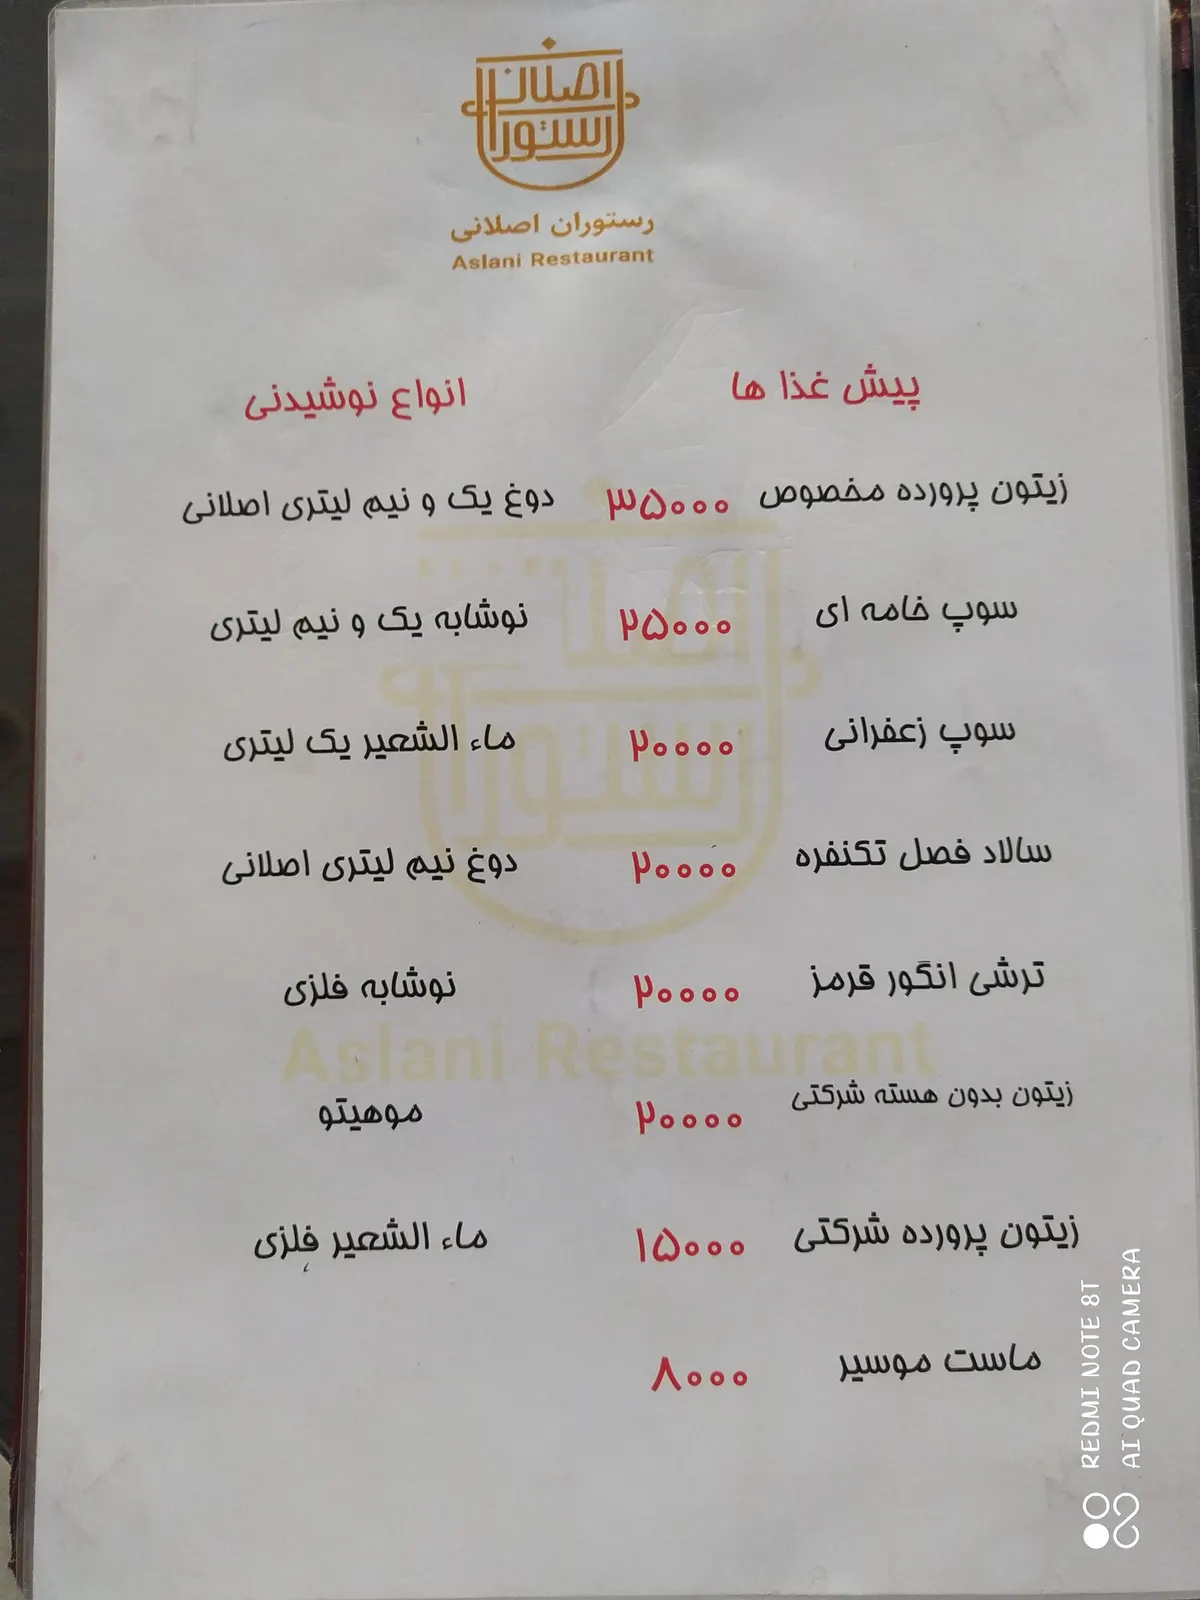 اصلانی
رستوران
رستوران اصلانی
Aslani Restaurant
پیش غذا ها
زیتون پرورده مخصوص ۳۵۰۰۰
سوپ خامه ای ۲۵۰۰۰
سوپ زعفرانی ۲۰۰۰۰
سالاد فصل تکنفره ۲۰۰۰۰
ترشی انگور قرمز ۲۰۰۰۰
زیتون بدون هسته شرکتی ۲۰۰۰۰
زیتون پرورده شرکتی ۱۵۰۰۰
ماست موسیر ۸۰۰۰
انواع نوشیدنی
دوغ یک و نیم لیتری اصلانی
نوشابه یک و نیم لیتری
ماء الشعیر یک لیتری
دوغ نیم لیتری اصلانی
نوشابه فلزی
موهیتو
ماء الشعیر فلزی
اصلانی
رستوران
Aslani Restaurant
REDMI NOTE 8T
AI QUAD CAMERA